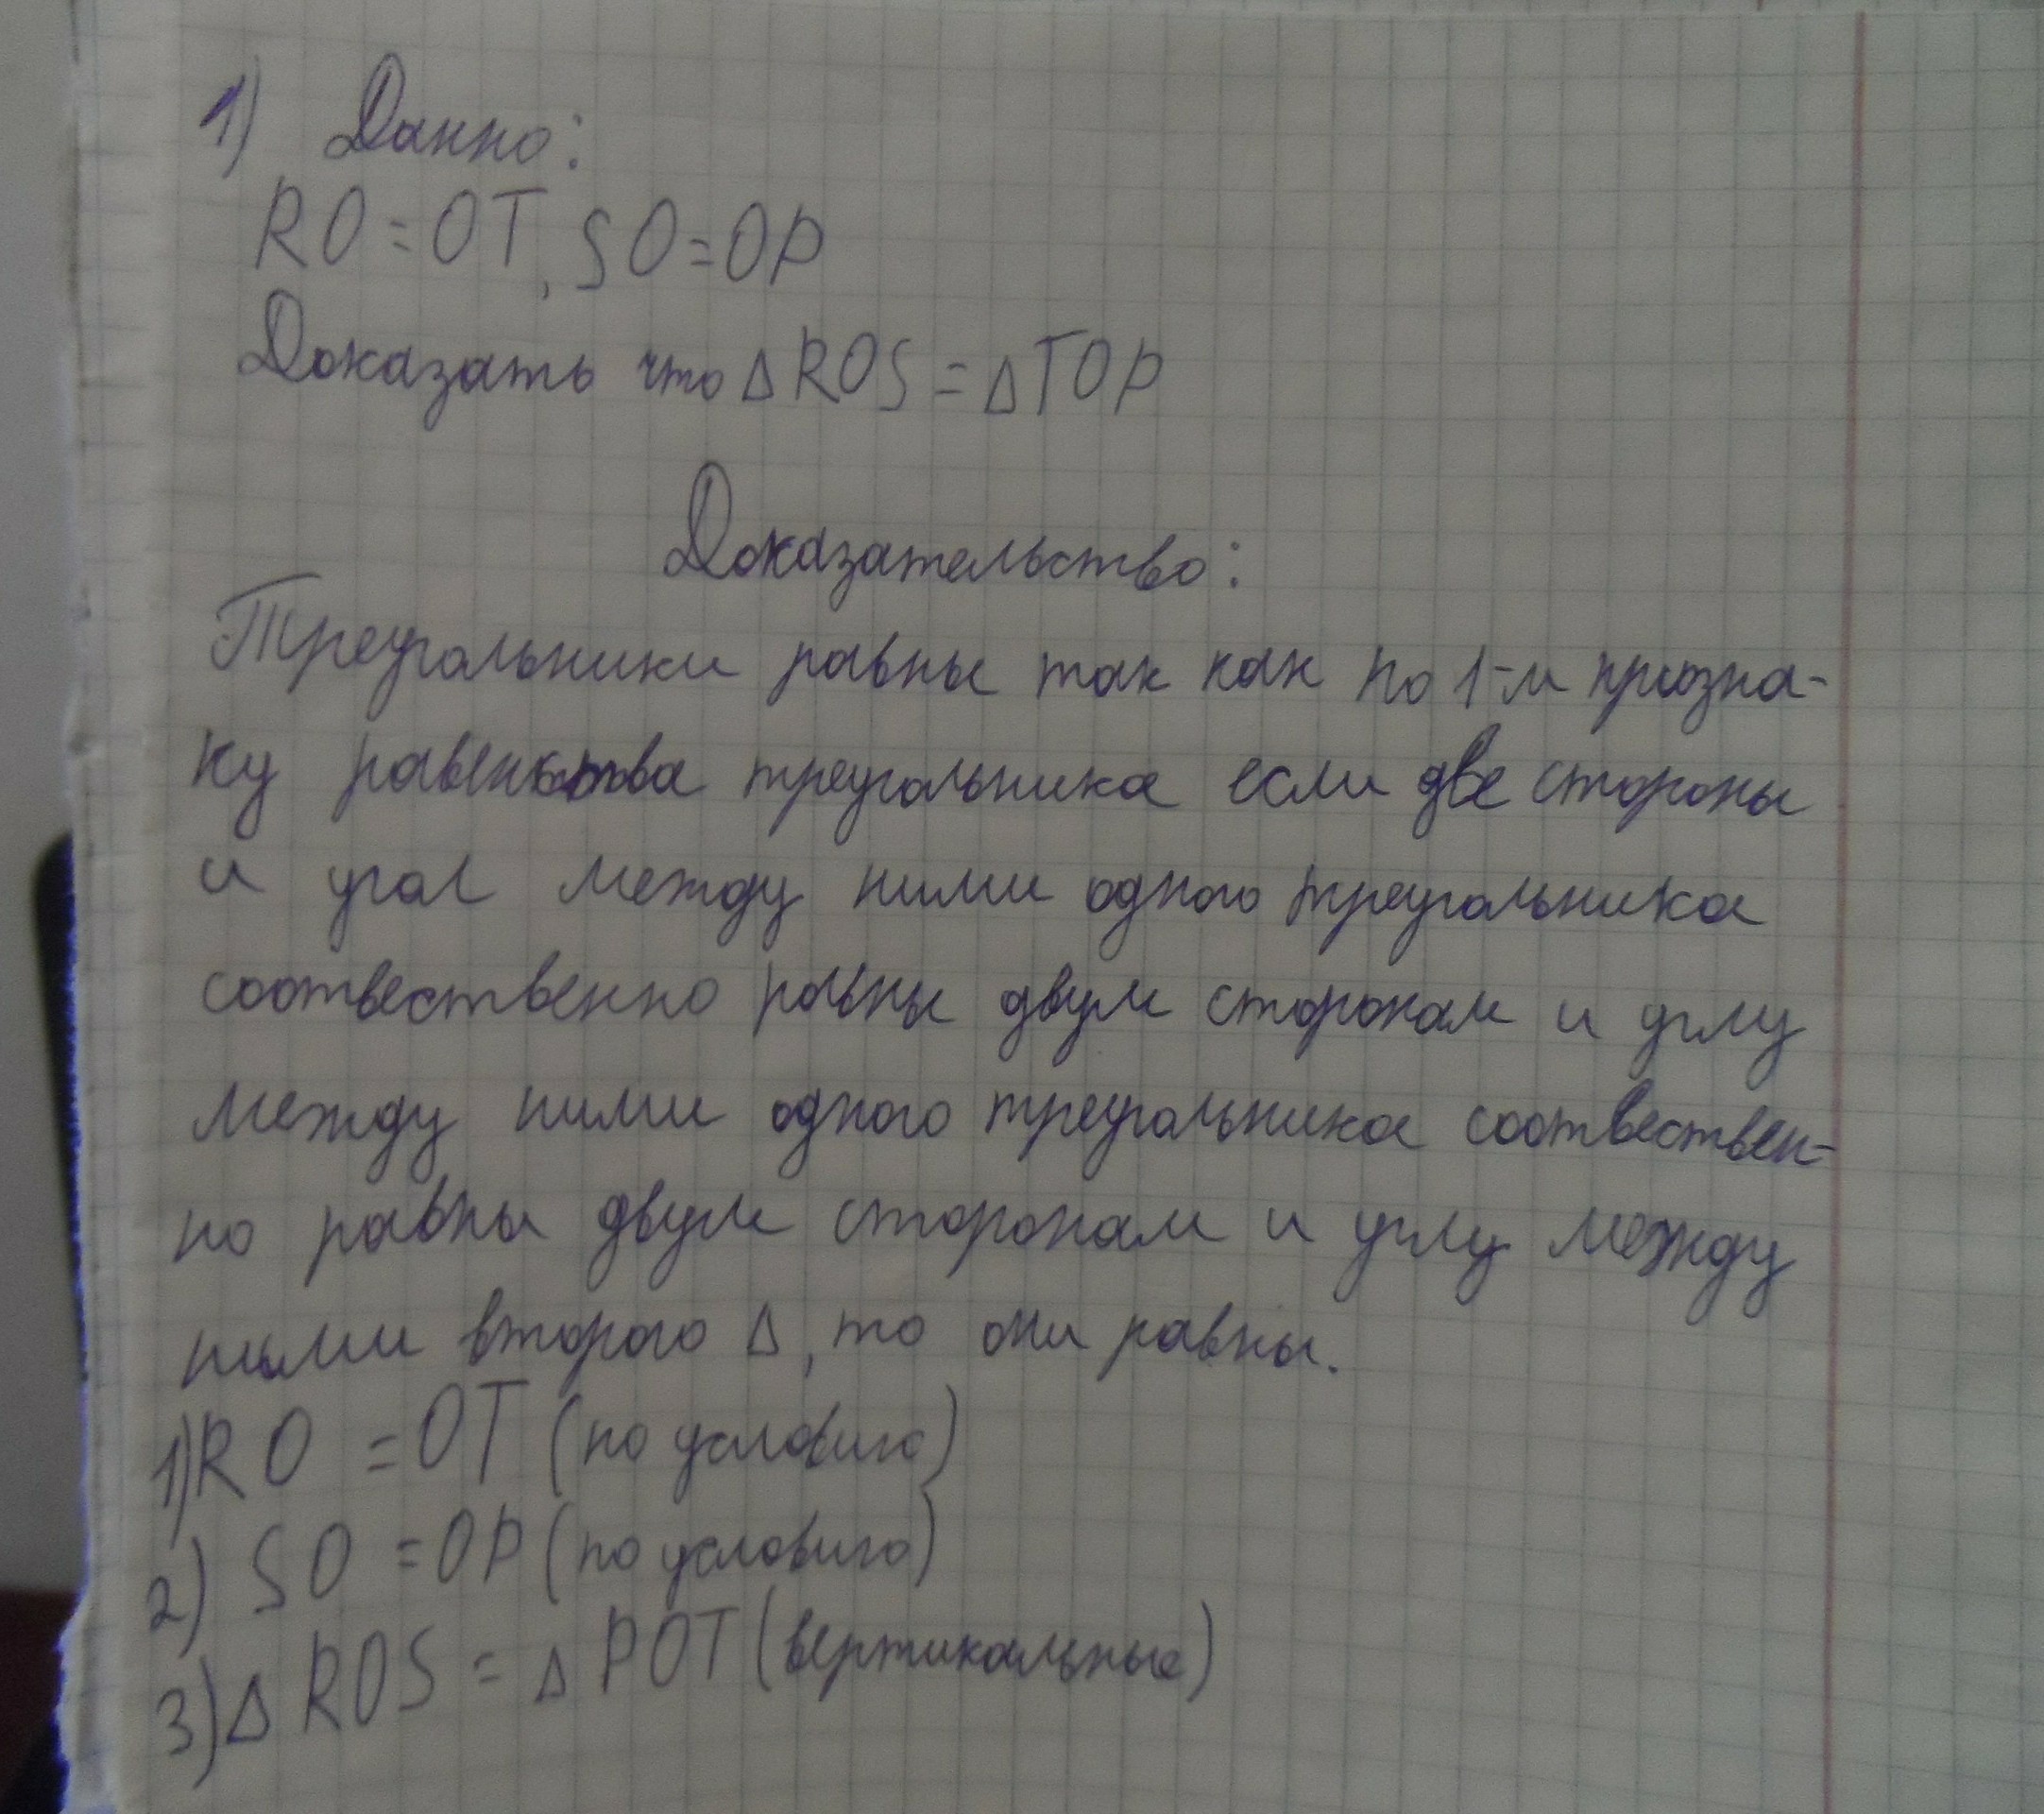 1) Данно:
RO=OT, SO=OP
Доказать что Δ ROS = Δ TOP
Доказательство:
Треугольники равны так как по 1-м призна-
ку равенства треугольника если две стороны
и угол между ними одного треугольника
соотвественно равны двум сторонам и углу
между ними одного треугольника соотвествен-
но равны двум сторонам и углу между
ними второго Δ, то они равны.
1) RO = OT (по условию)
2) SO = OP (по условию)
3) Δ ROS = Δ POT (вертикальные)